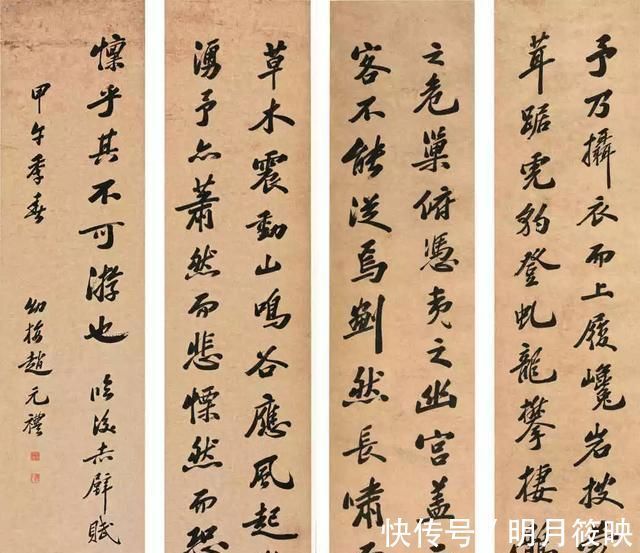 予乃攝衣而上履巉岩披
茸踞虎豹登虬龍攀棲
之危巢俯憑夷之幽宮蓋
客不能從焉劃然長嘯
草木震動山鳴谷應風起
湧予亦蕭然而悲慄然而恐
懍乎其不可游也 臨後赤壁賦
甲午季春 幼梅趙元禮
快传号 / 明月筱映